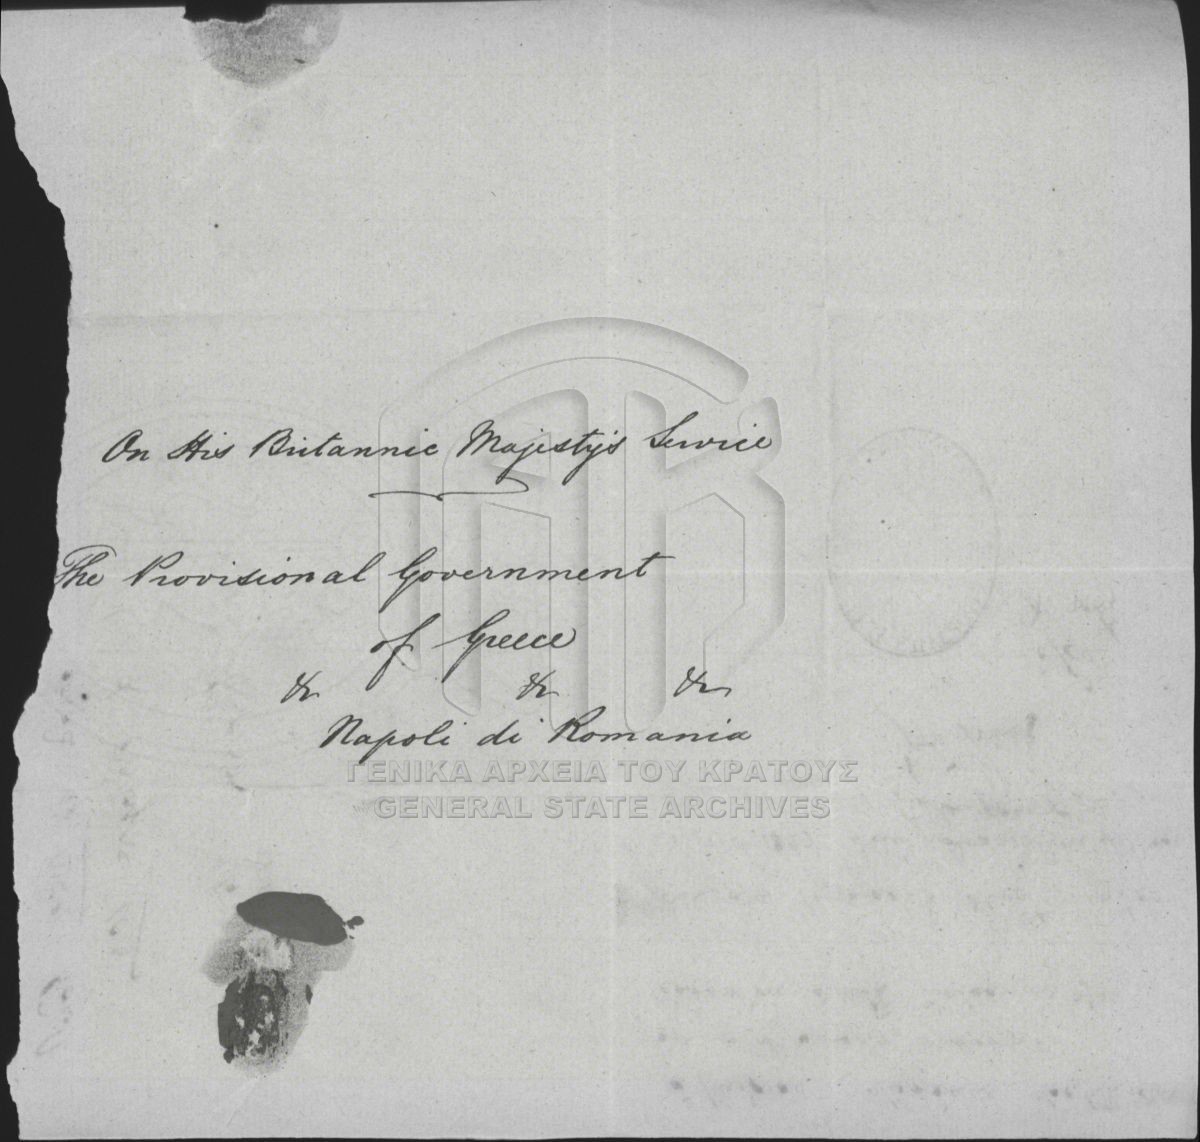 On His Britannic Majesty's Service
The Provisional Government
of Greece
&c &c &c
Napoli di Romania
ΓΕΝΙΚΑ ΑΡΧΕΙΑ ΤΟΥ ΚΡΑΤΟΥΣ
GENERAL STATE ARCHIVES